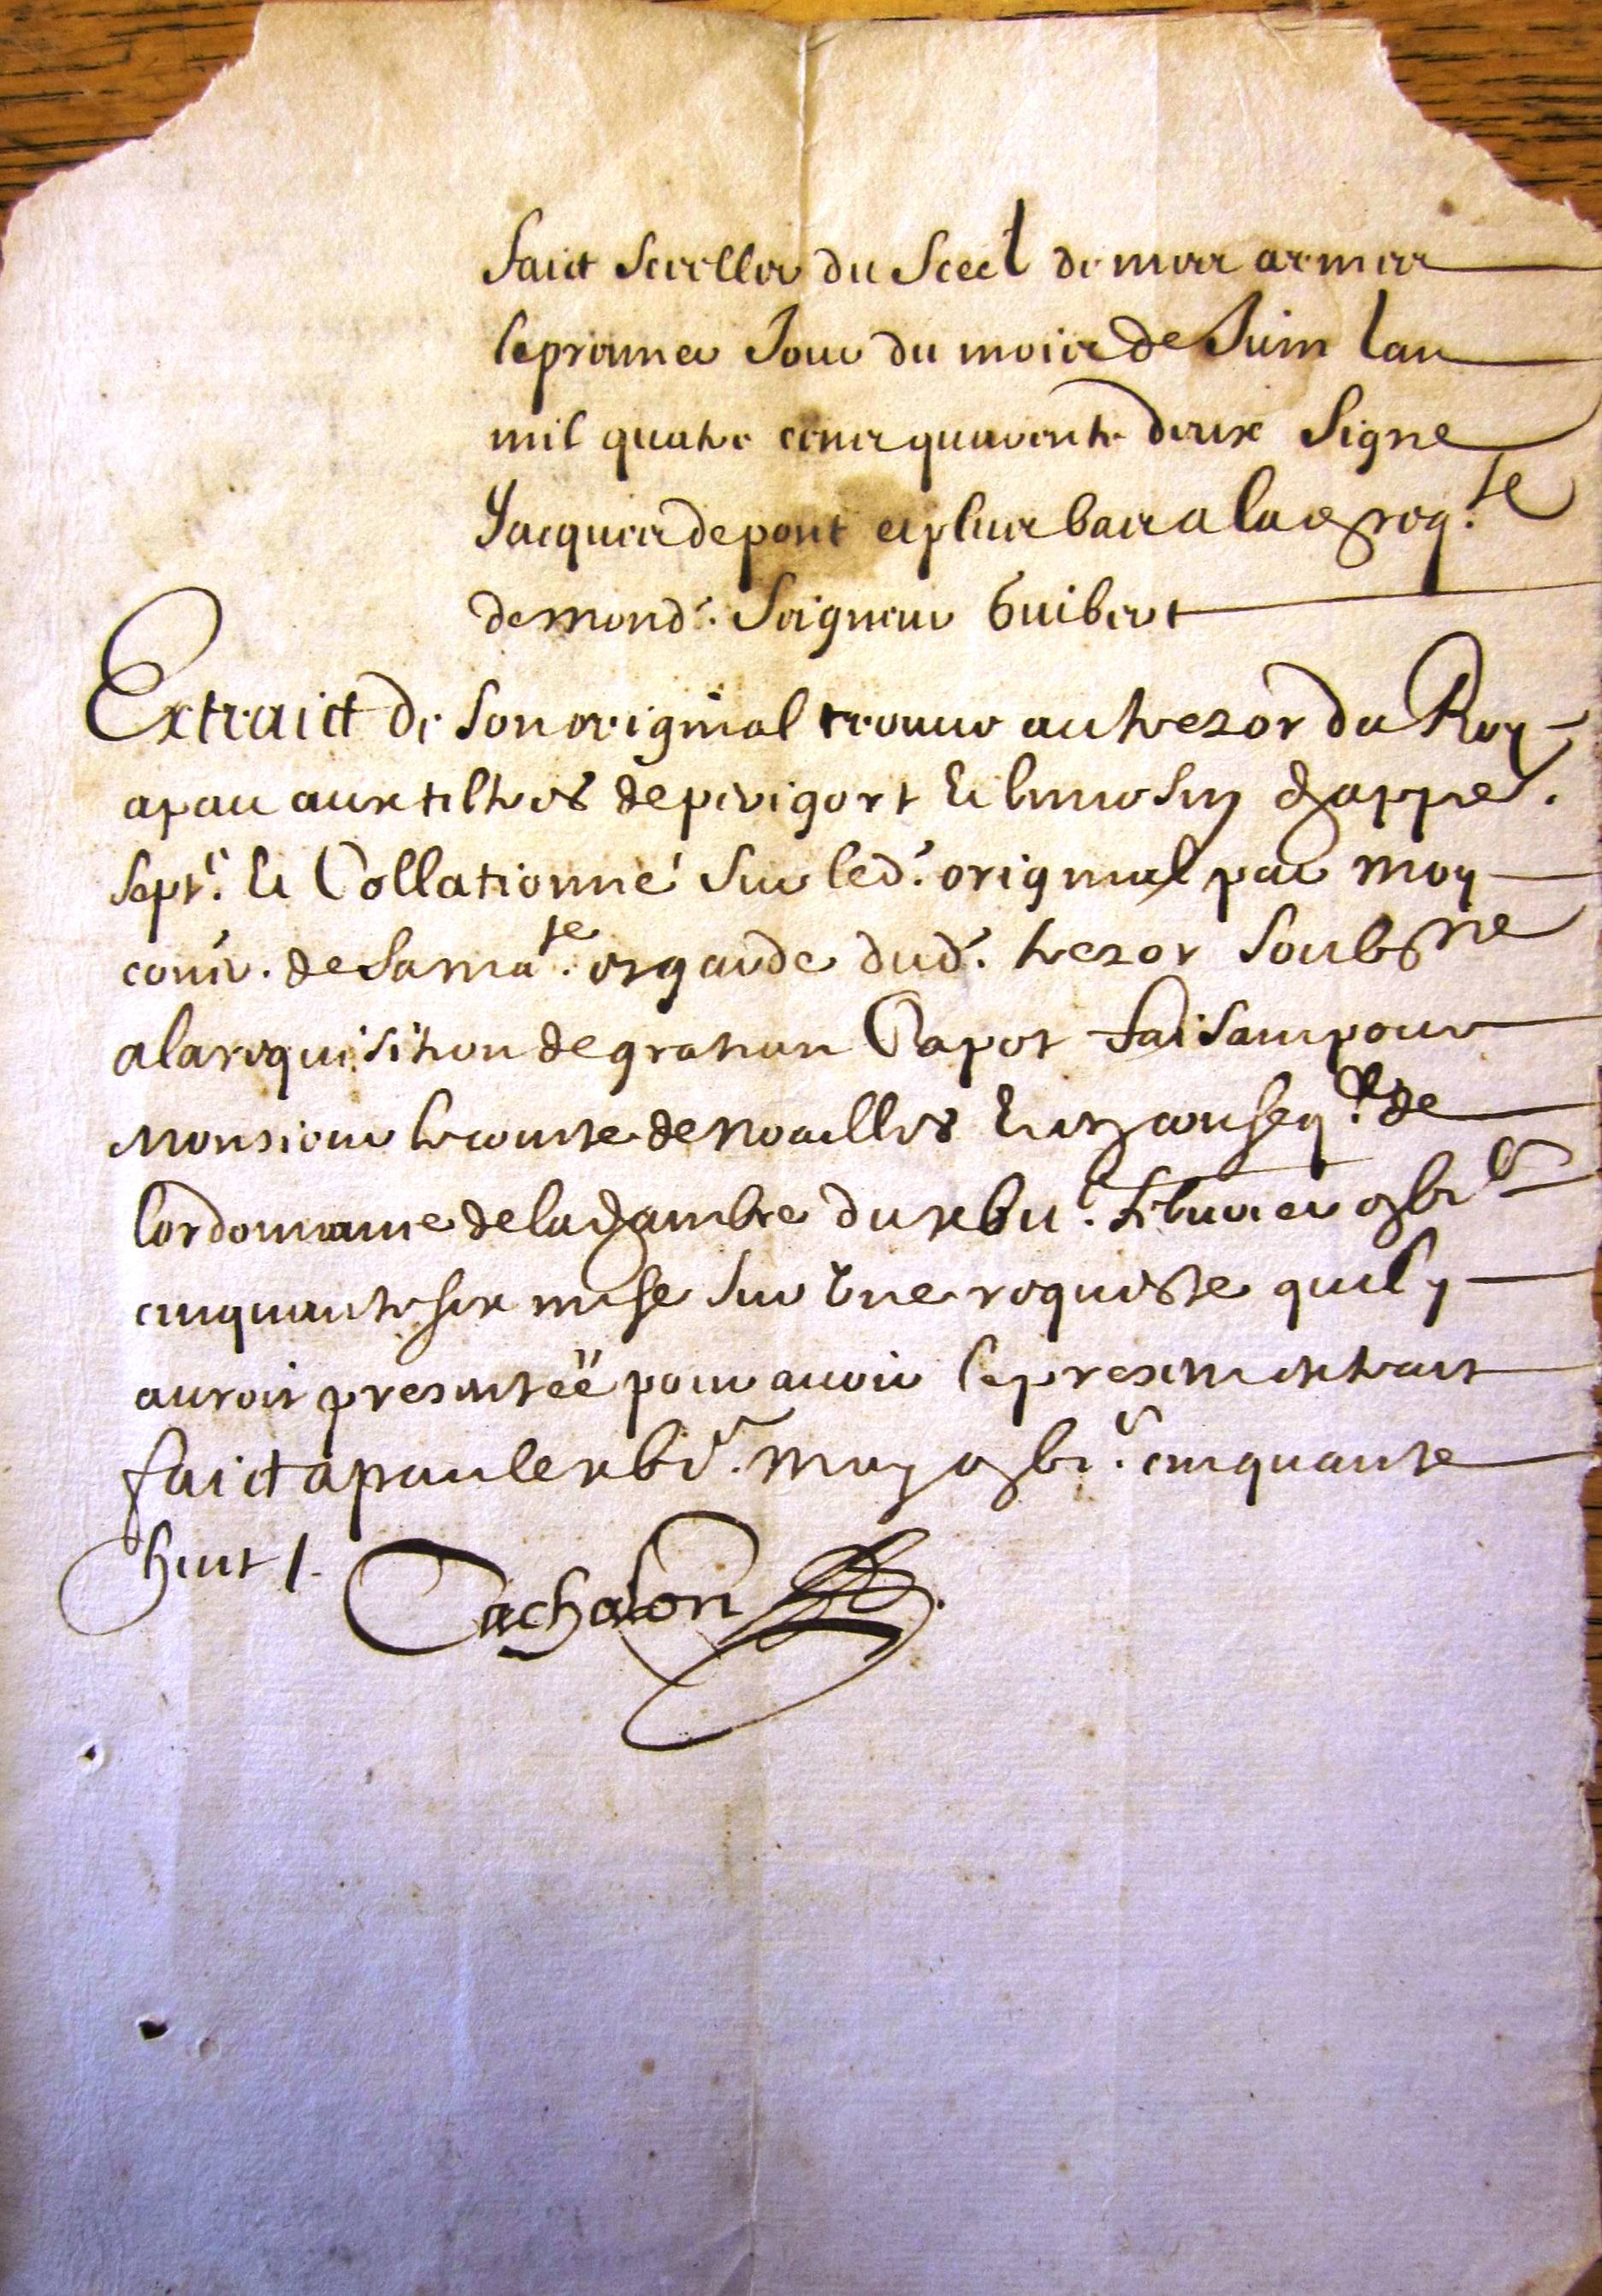 faict sceeller du sceel de mes armes
le premier Jour du mois de Juin lan
mil quatre cens quarente deux Signe
Jacques de pont et plus bas a la req.te
de mond. Seigneur Guibert
Extraict de son original trouue au trezor du Roy
a pau aux tiltres de perigort et limosin chappe.
sept. et Collationné sur led. original par moy
cons.r de sa ma.te et garde dud. trezor soubsne
a la requisition de gratian Capot faisant pour
Monsieur le comte de noailles et en conseq. de
lordonnance de la chambre du xbii. feburier gbi.c
cinquante six mise sur Une requeste quil y
auroit presentéé pour auoir le present extraict
faict a pau le xbi.e May gbi.c cinquante
huit /.
Cachalon